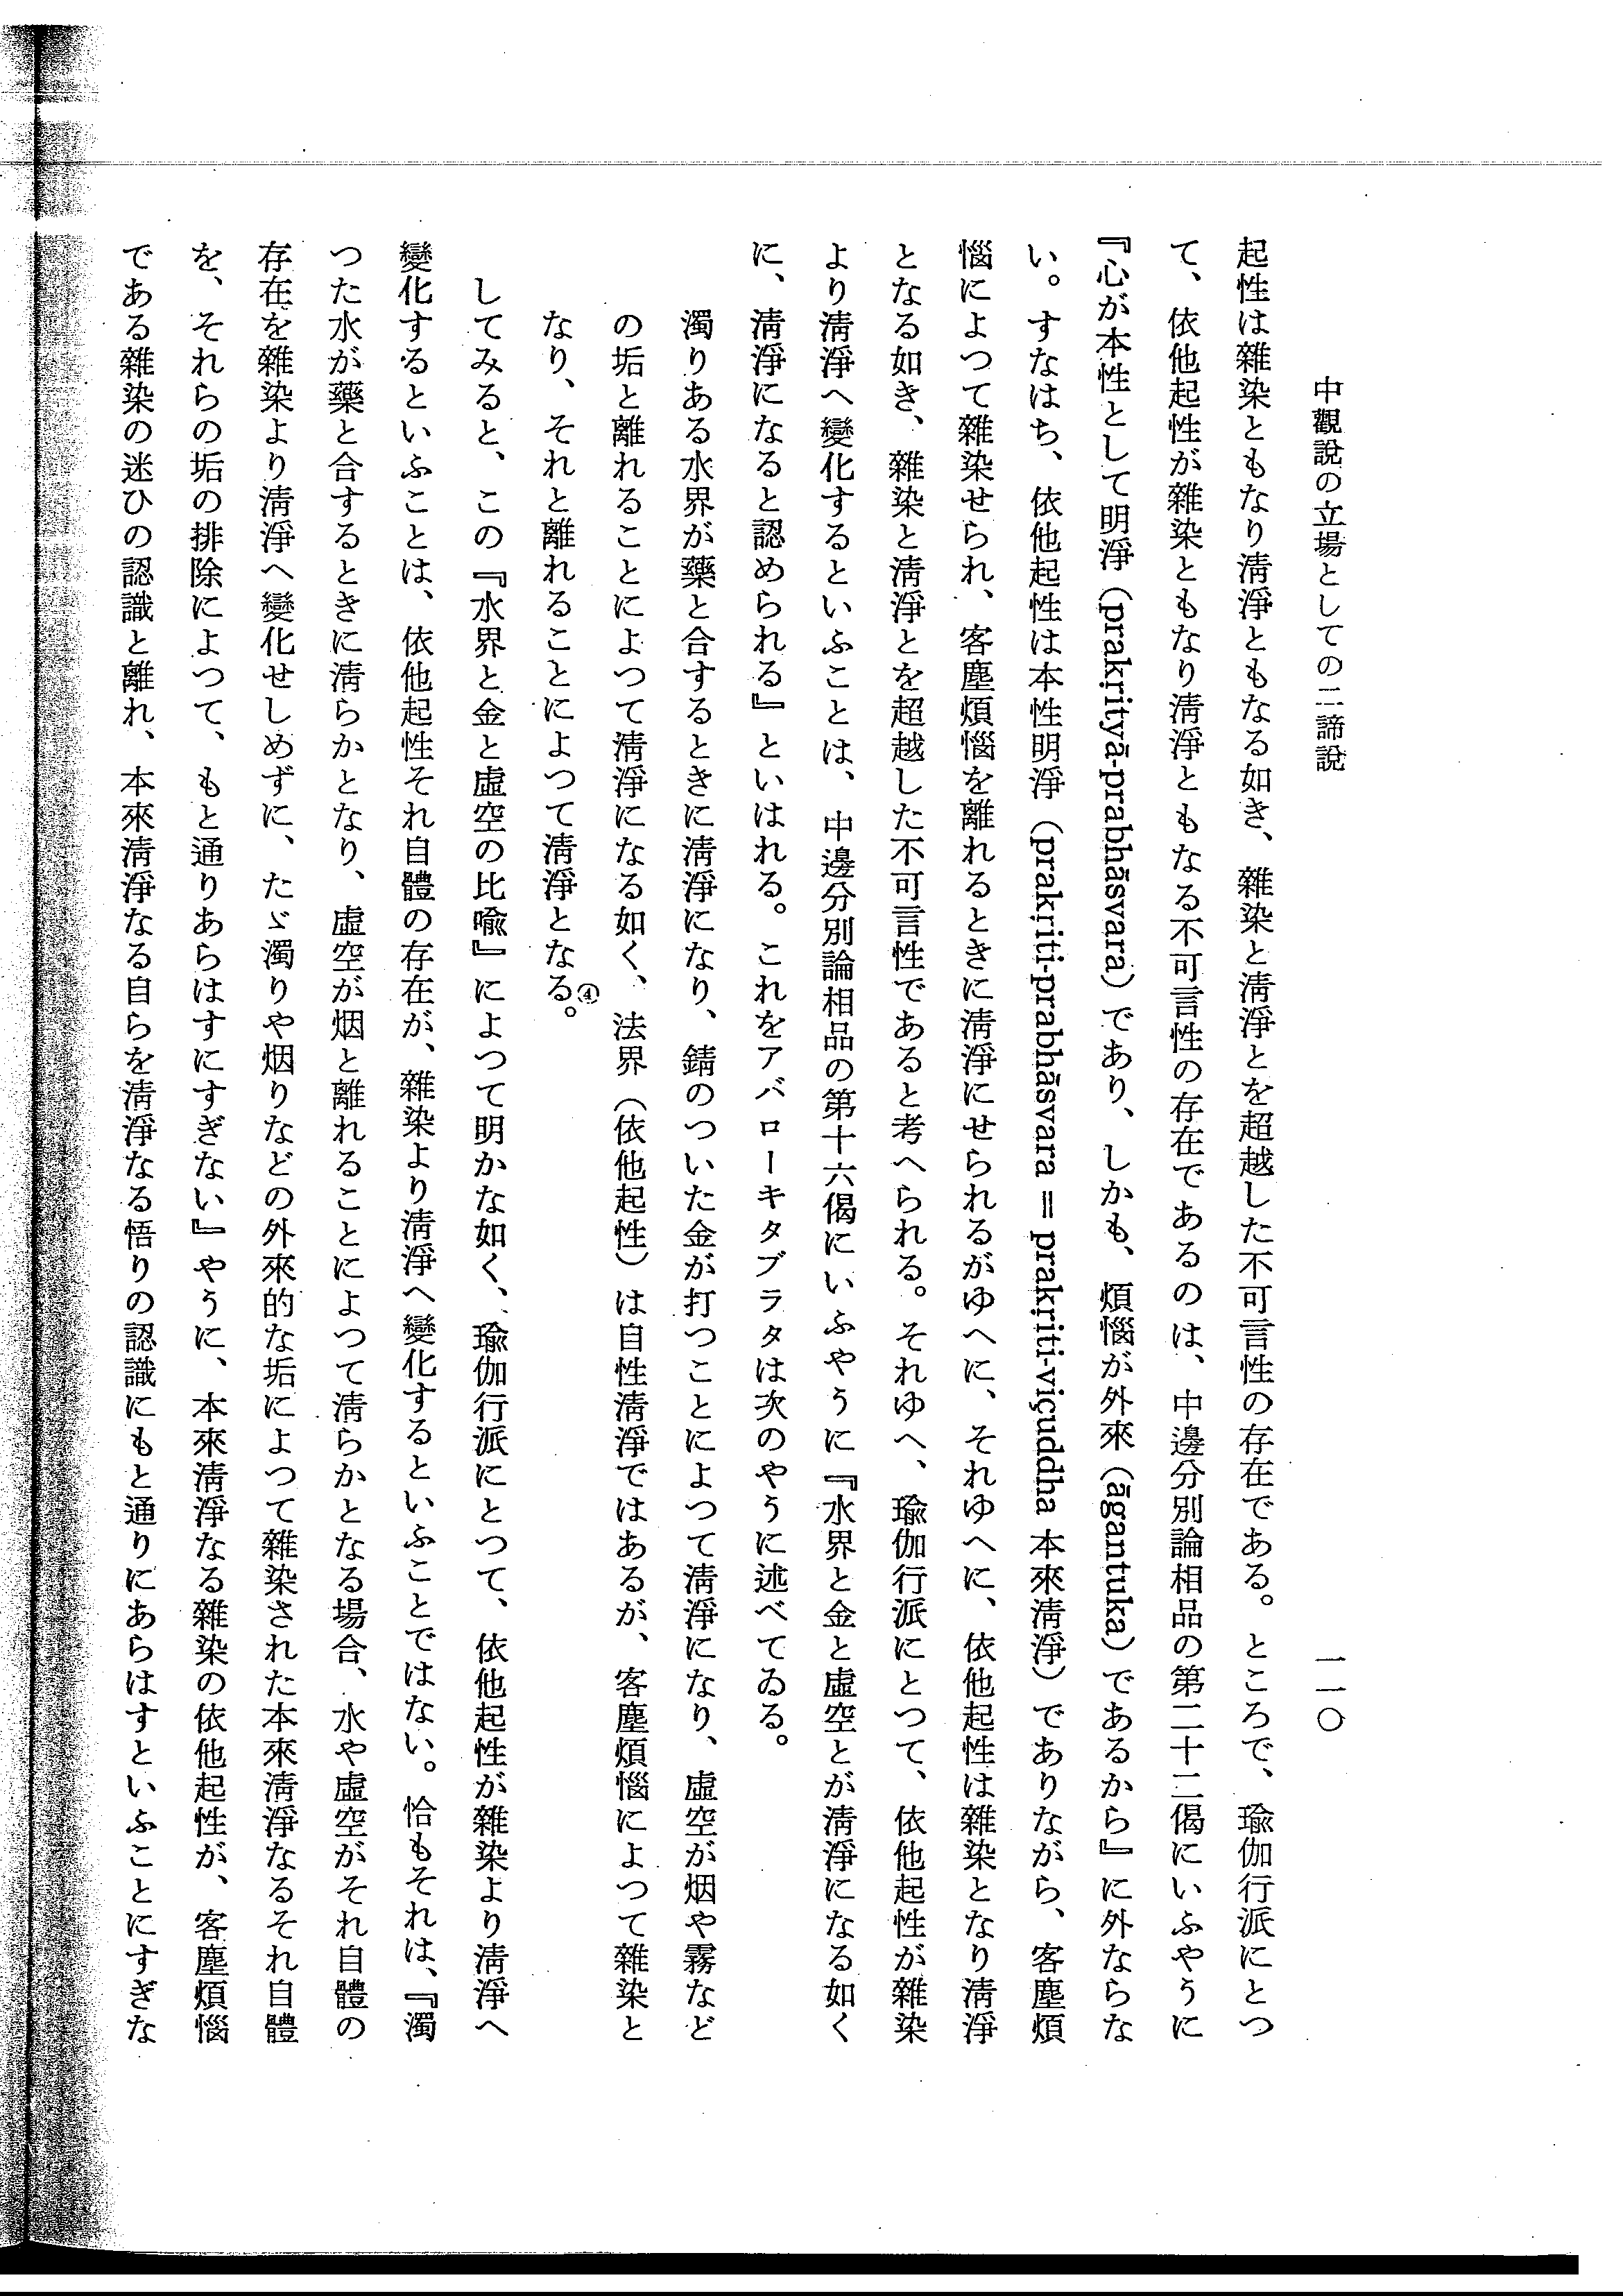 中觀説の立場としての二諦説
一一〇
起性は雜染ともなり淸淨ともなる如き、雜染と淸淨とを超越した不可言性の存在である。ところで、瑜伽行派にとつ
て、依他起性が雜染ともなり淸淨ともなる不可言性の存在であるのは、中邊分別論相品の第二十二偈にいふやうに
『心が本性として明淨（prakṛityā-prabhāsvara）であり、しかも、煩惱が外來（āgantuka）であるから』に外ならな
い。すなはち、依他起性は本性明淨（prakṛiti-prabhāsvara＝prakṛiti-viçuddha 本來淸淨）でありながら、客塵煩
惱によつて雜染せられ、客塵煩惱を離れるときに淸淨にせられるがゆへに、それゆへに、依他起性は雜染となり淸淨
となる如き、雜染と淸淨とを超越した不可言性であると考へられる。それゆへ、瑜伽行派にとつて、依他起性が雜染
より淸淨へ變化するといふことは、中邊分別論相品の第十六偈にいふやうに『水界と金と虛空とが淸淨になる如く
に、淸淨になると認められる』といはれる。これをアバローキタブラタは次のやうに述べてゐる。
濁りある水界が藥と合するときに淸淨になり、錆のついた金が打つことによつて淸淨になり、虛空が烟や霧など
の垢と離れることによつて淸淨になる如く、法界（依他起性）は自性淸淨ではあるが、客塵煩惱によつて雜染と
なり、それと離れることによつて淸淨となる④。
してみると、この『水界と金と虛空の比喩』によつて明かな如く、瑜伽行派にとつて、依他起性が雜染より淸淨へ
變化するといふことは、依他起性それ自體の存在が、雜染より淸淨へ變化するといふことではない。恰もそれは、『濁
つた水が藥と合するときに淸らかとなり、虛空が烟と離れることによつて淸らかとなる場合、水や虛空がそれ自體の
存在を雜染より淸淨へ變化せしめずに、たゞ濁りや烟りなどの外來的な垢によつて雜染された本來淸淨なるそれ自體
を、それらの垢の排除によつて、もと通りあらはすにすぎない』やうに、本來淸淨なる雜染の依他起性が、客塵煩惱
である雜染の迷ひの認識と離れ、本來淸淨なる自らを淸淨なる悟りの認識にもと通りにあらはすといふことにすぎな